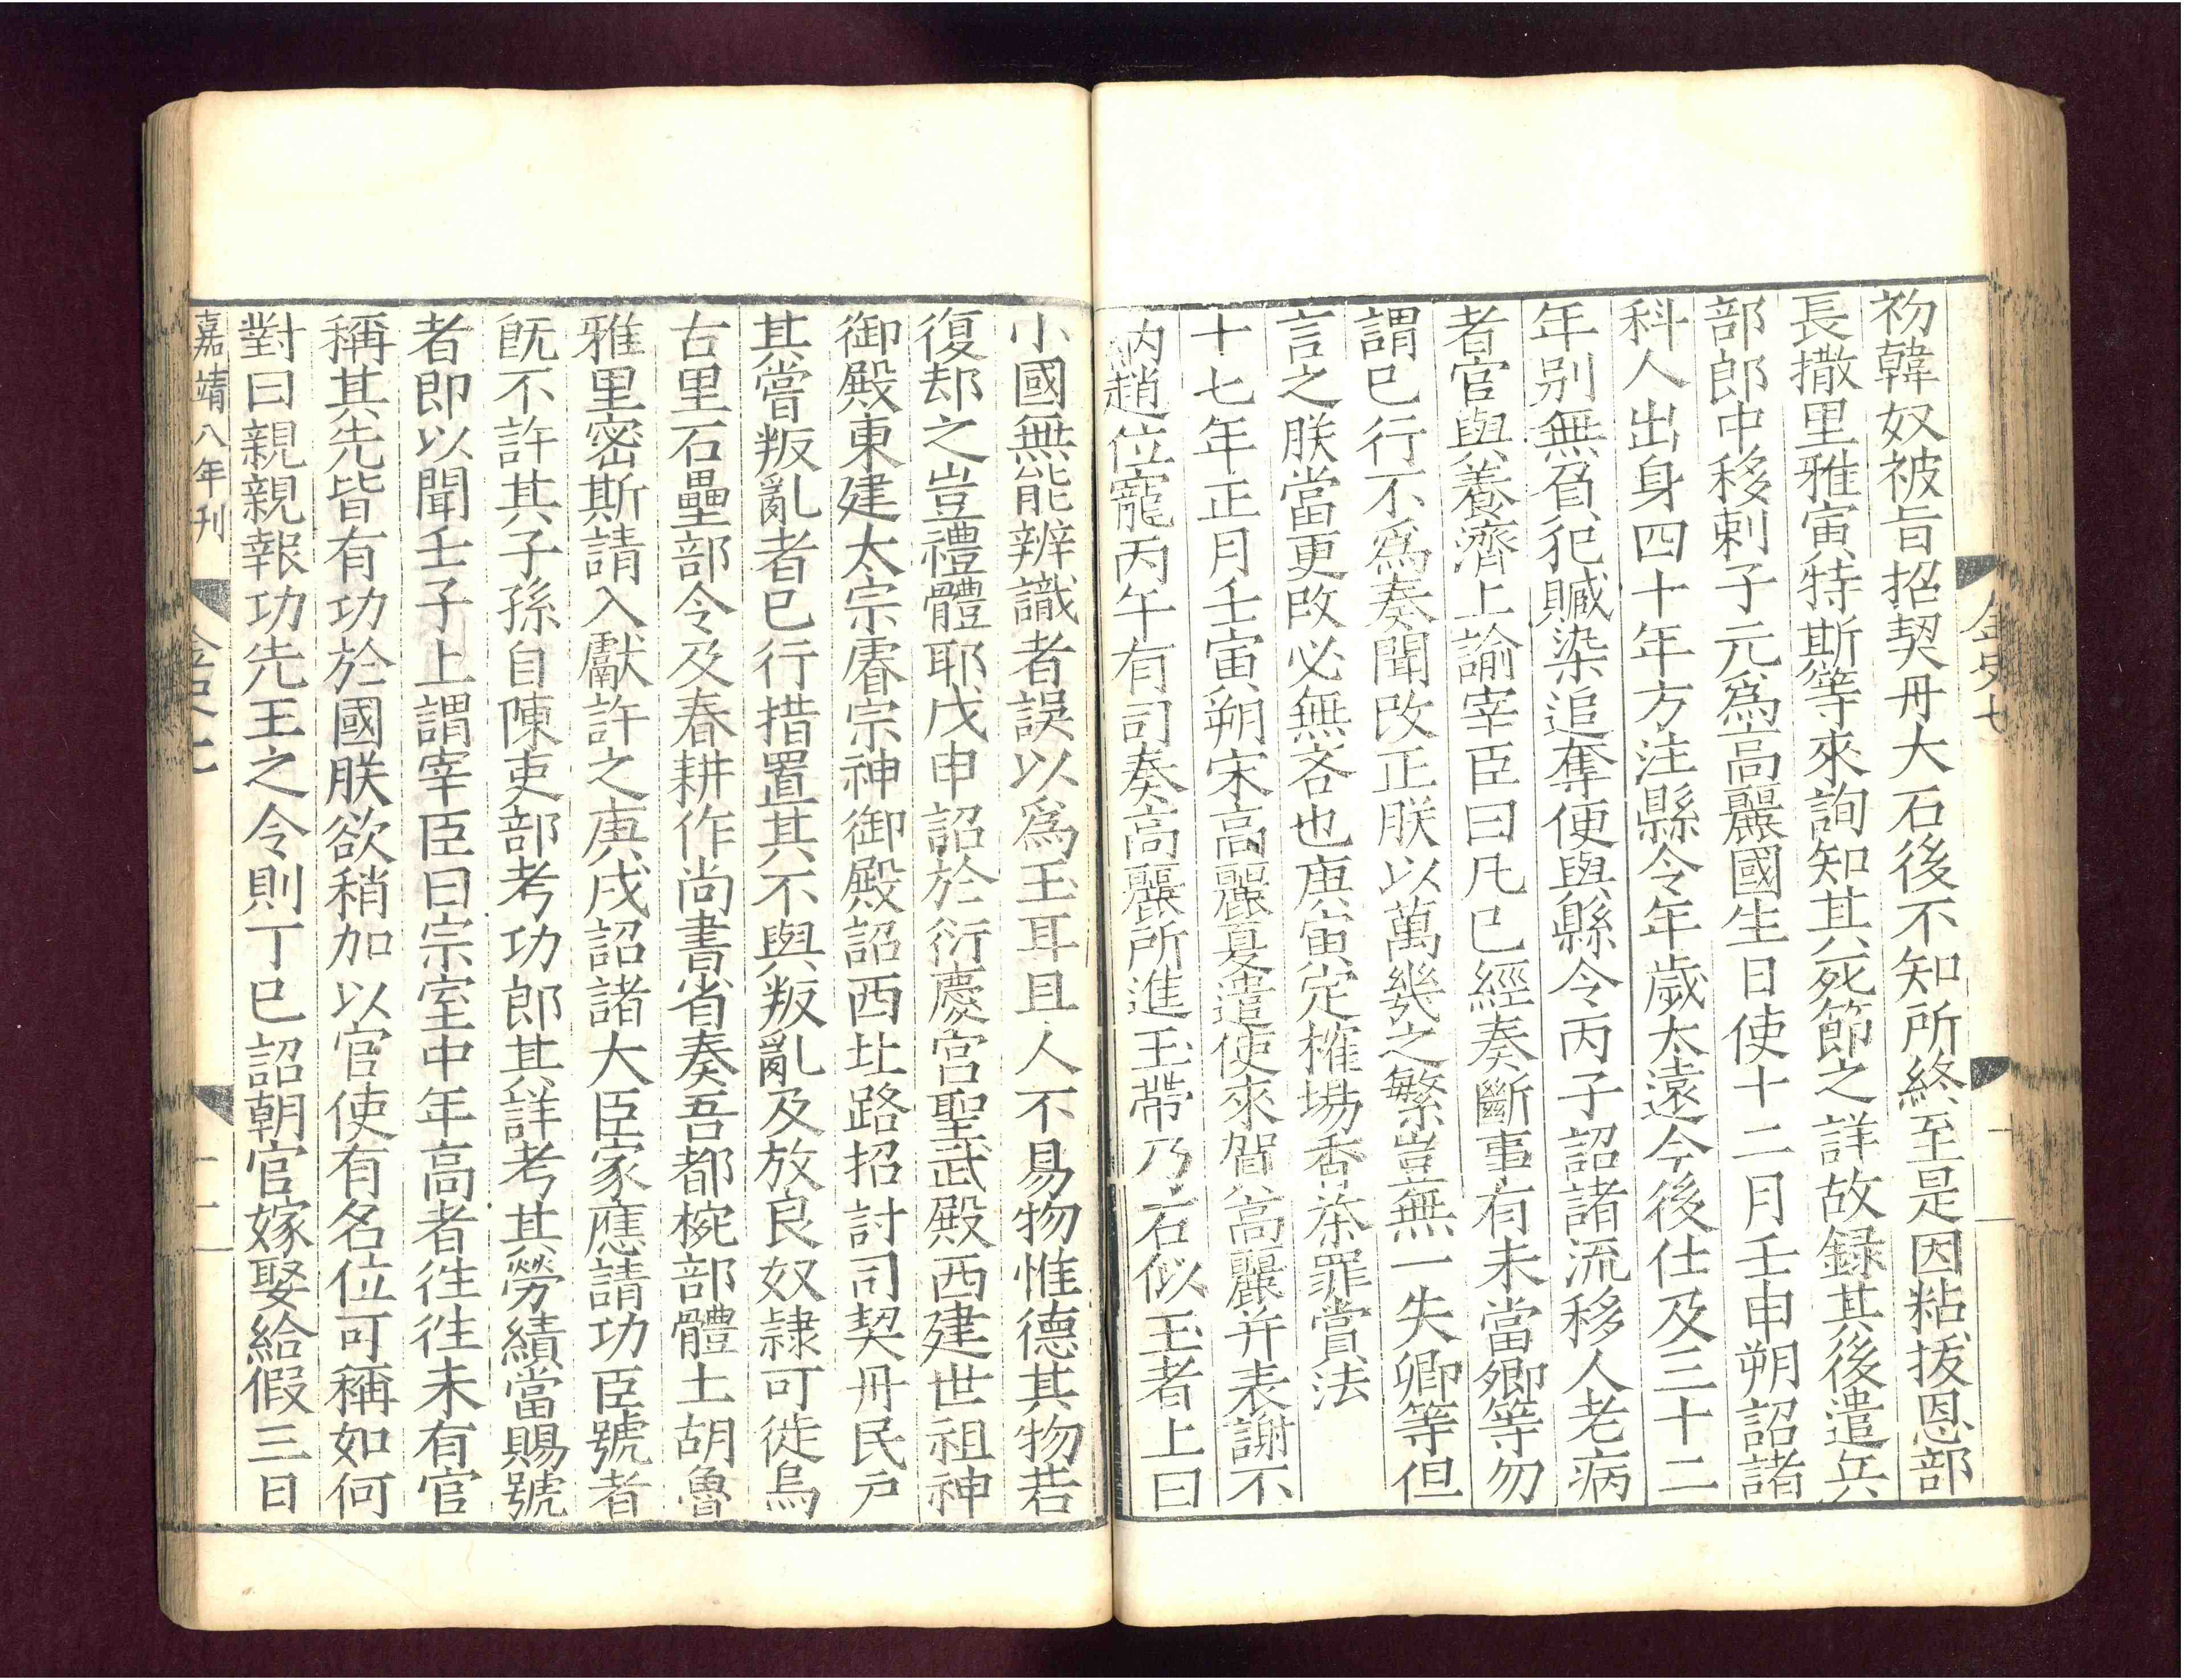 初韓奴被旨招契丹大石後不知所終至是因粘拔恩部
長撒里雅寅特斯等來詢知其死節之詳故録其後遣兵
部郎中移剌子元爲高麗國生日使十二月壬申朔詔諸
科人出身四十年方注縣令年歲太遠今後仕及三十二
年别無負犯贓染追奪便與縣令丙子詔諸流移人老病
者官與養濟上諭宰臣曰凡已經奏斷事有未當卿等勿
謂已行不爲奏聞改正朕以萬幾之繁豈無一失卿等但
言之朕當更改必無吝也庚寅定榷場香茶罪賞法
十七年正月壬寅朔宋高麗夏遣使來賀高麗并表謝不
納趙位寵丙午有司奏高麗所進玉帶乃石似玉者上曰
小國無能辨識者誤以爲玉耳且人不易物惟德其物若
復却之豈禮體耶戊申詔於衍慶宫聖武殿西建世祖神
御殿東建太宗睿宗神御殿詔西北路招討司契丹民戶
其嘗叛亂者已行措置其不與叛亂及放良奴隷可徙烏
古里石壘部令及春耕作尚書省奏吾都椀部體土胡魯
雅里密斯請入獻許之庚戌詔諸大臣家應請功臣號者
旣不許其子孫自陳吏部考功郎其詳考其勞績當賜號
者即以聞壬子上謂宰臣曰宗室中年高者徃徃未有官
稱其先皆有功於國朕欲稍加以官使有名位可稱如何
對曰親親報功先王之令則丁巳詔朝官嫁娶給假三日
嘉靖八年刊
金史七